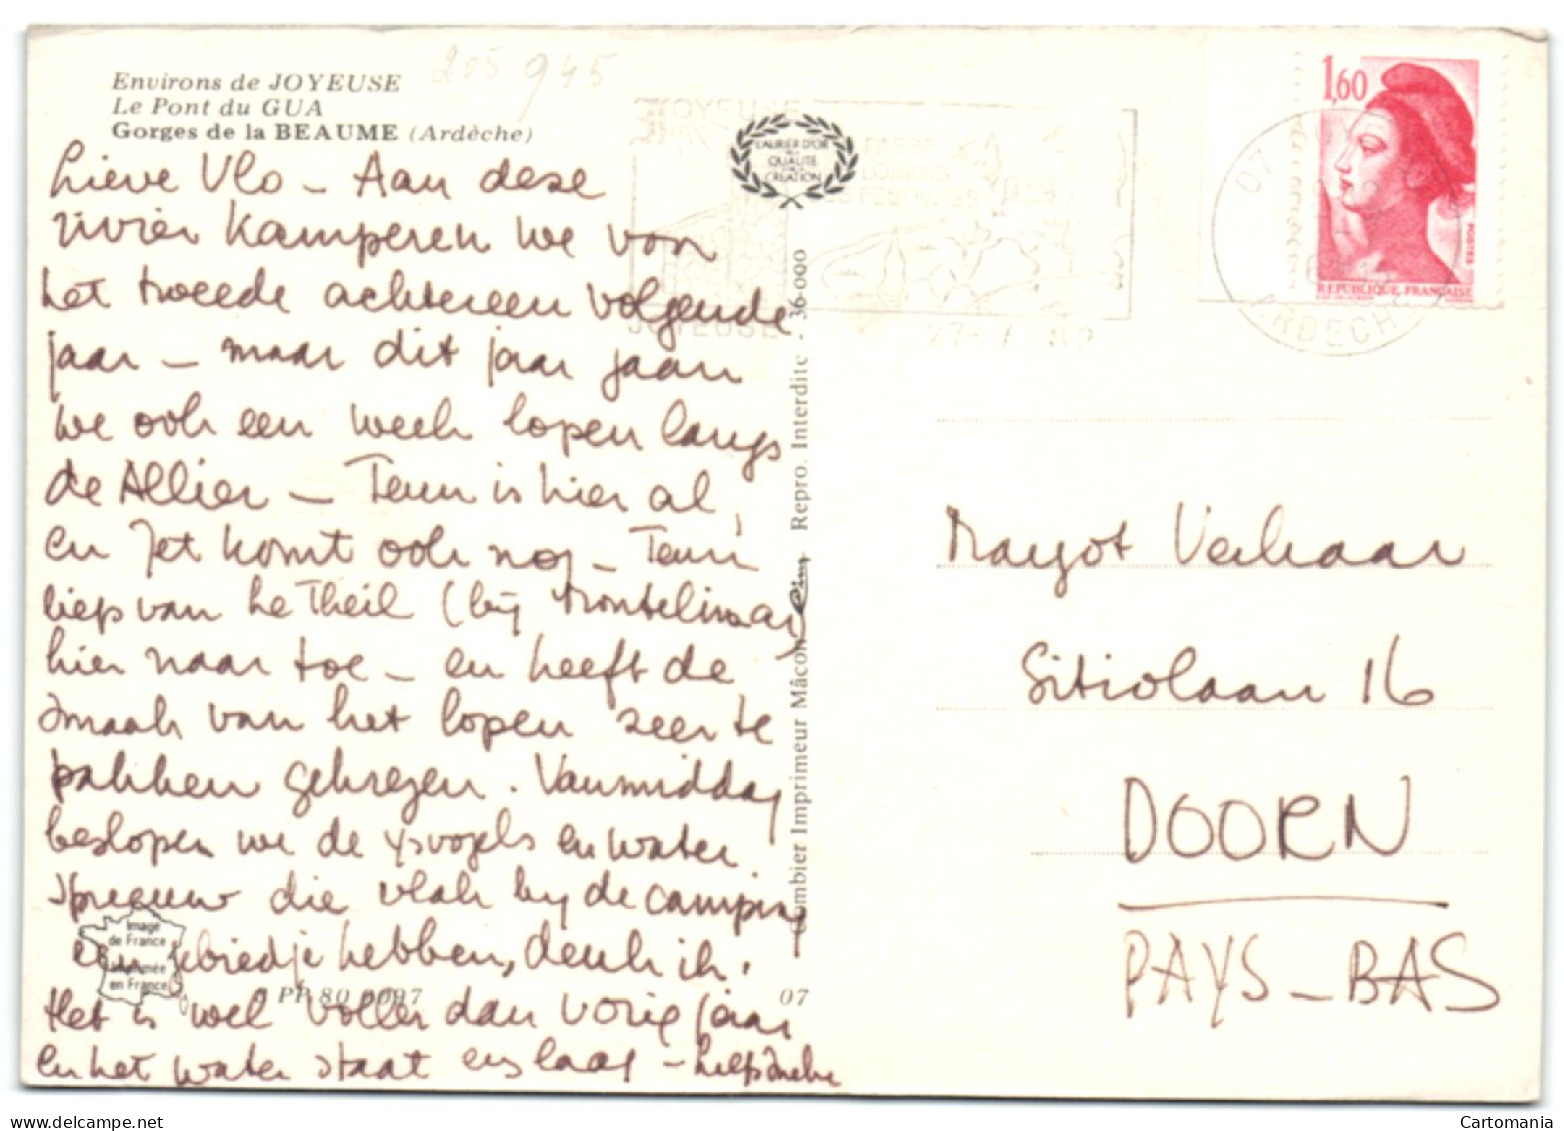 205 945
Environs de JOYEUSE
Le Pont du GUA
Gorges de la BEAUME (Ardèche)
Lieve Vlo - Aan deze
rivier kamperen we voor
het tweede achtereen volgende
jaar - maar dit jaar gaan
we ook een week lopen langs
de Allier - Teun is hier al,
en Jet komt ook nog - Teun
liep van Le Theil (bij Montelimar)
hier naar toe - en heeft de
smaak van het lopen zeer te
pakken gekregen. Vanmiddag
beslopen we de ysvogels en water
spreeuw die vlak bij de camping
een gebiedje hebben, denk ik.
Het is wel voller dan vorig jaar
en het water staat erg laag - Liefs
Image
de France
Imprimée
en France
PP 80 0097
07
Combier Imprimeur Mâcon Cim Repro. Interdite - 36-000
LAURIER D'OR
QUALITÉ
CRÉATION
JOYEUSE
JOYEUSE
27-7
07
ARDECHE
1,60
POSTES
REPUBLIQUE FRANÇAISE
Margot Verhaar
Sitiolaan 16
DOORN
PAYS-BAS
Cartomania
delcampe.net